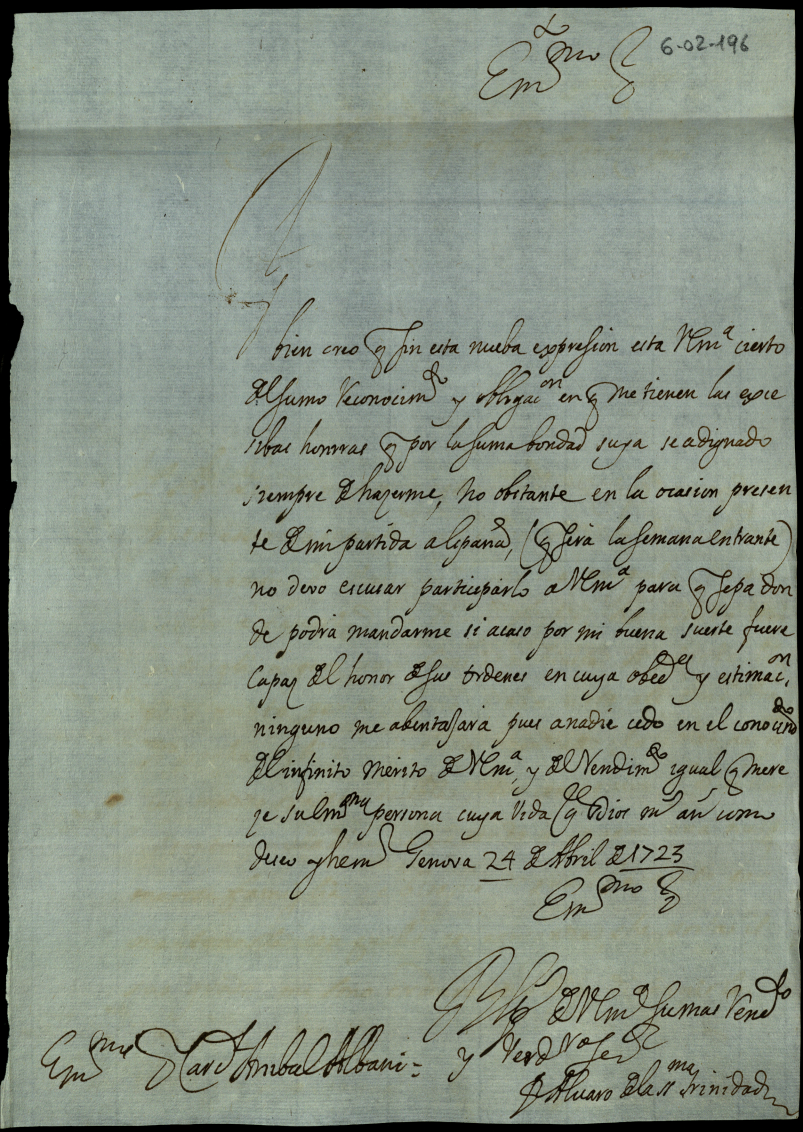 6-02-196
Em.mo S.r
bien creo q sin esta nueba expresion esta VEm.a cierto
del sumo reconocim.to y obligac.on en q me tienen las exce
sibas honrras q por la suma bondad suya se a dignado
siempre de hazerme, no obstante en la ocasion presen
te de mi partida a España, (q será la semana entrante)
no devo escusar participárlo a VEm.a para q sepa don
de podrá mandarme si acaso por mi buena suerte fuere
capaz del honor de sus ordenes en cuya obed.a y estimac.on
ninguno me abentajará pues a nadie cedo en el conocim.to
del infinito mérito de VEm.a y del rendim.to igual q mere
ze su Em.ma persona cuya vida g.e Dios m.s an.s como
deseo y he m.r Genova 24 de Abril de 1723
Em.mo S.r
BLM de VEm.a su mas rend.do
y verd.ro ser.r
Em.mo S.r Card.l Anibal Albani =
Fr Alvaro de la SS.ma Trinidad